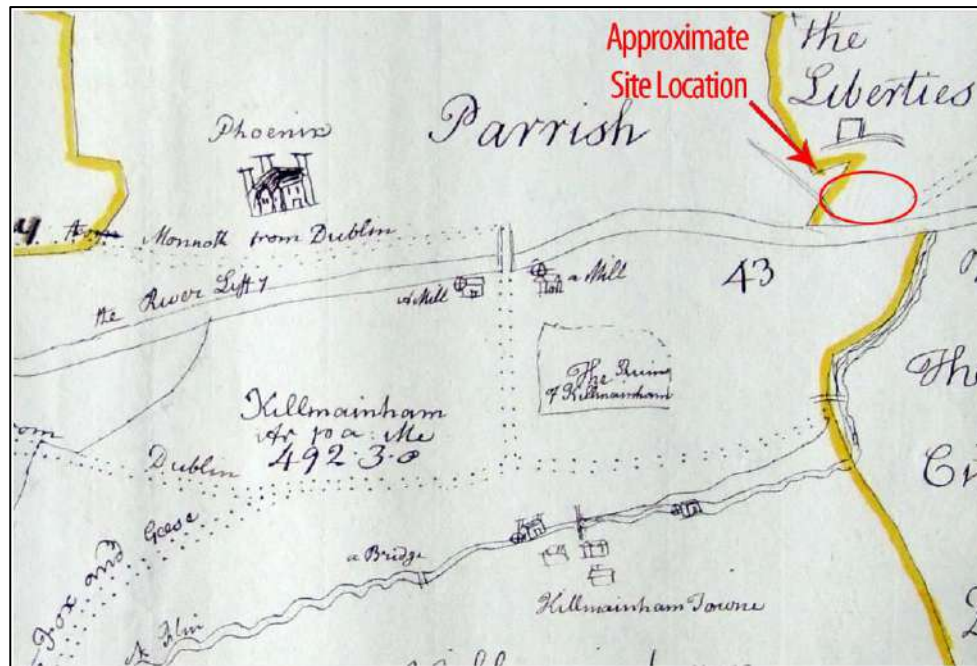 Approximate
Site Location
the
Liberties
Phoenix
Parrish
Monnoth from Dublin
the River Liffy
A Mill
a Mill
43
The Ruins
of Killmainham
Killmainham
Ar ro a: Me
492-3-0
Dublin
Fox and Geese
a Bridge
Killmainham Towne
The